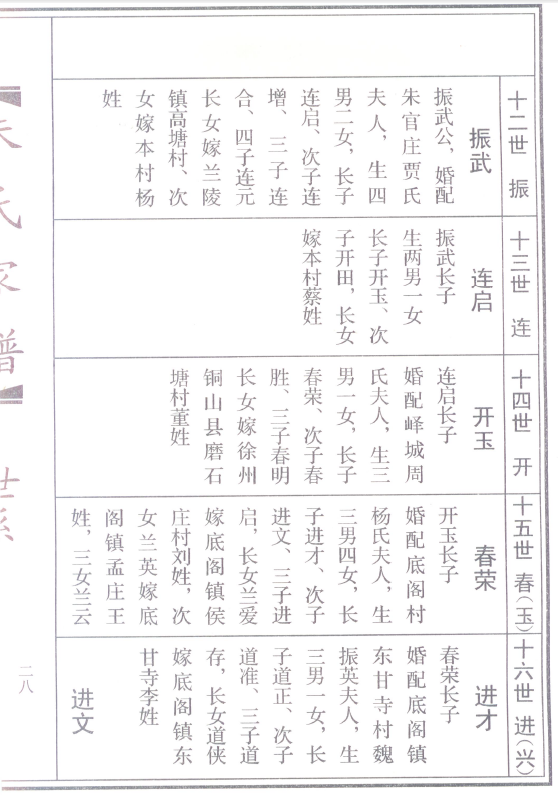 十二世 振
振武
振武公，婚配
朱官庄贾氏
夫人，生四
男二女，长子
连启、次子连
增、三子连
合、四子连元
长女嫁兰陵
镇高塘村、次
女嫁本村杨
姓
十三世 连
连启
振武长子
生两男一女
长子开玉、次
子开田，长女
嫁本村蔡姓
十四世 开
开玉
连启长子
婚配峄城周
氏夫人，生三
男一女，长子
春荣、次子春
胜、三子春明
长女嫁徐州
铜山县磨石
塘村董姓
十五世 春（玉）
春荣
开玉长子
婚配底阁村
杨氏夫人，生
三男四女，长
子进才、次子
进文、三子进
启，长女兰爱
嫁底阁镇侯
庄村刘姓，次
女兰英嫁底
阁镇孟庄王
姓，三女兰云
十六世 进（兴）
进才
春荣长子
婚配底阁镇
东甘寺村魏
振英夫人，生
三男一女，长
子道正、次子
道准、三子道
存，长女道侠
嫁底阁镇东
甘寺李姓
进文
氏家谱
世系
二八